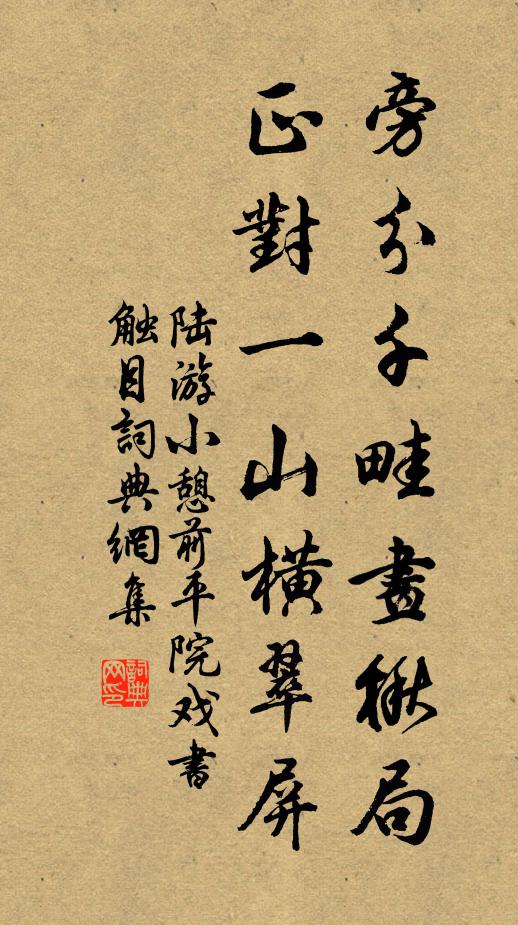 旁分千畦畫楸局
正對一山橫翠屏
陆游小憩前平院戏书
触目詞典網集
詞典网印